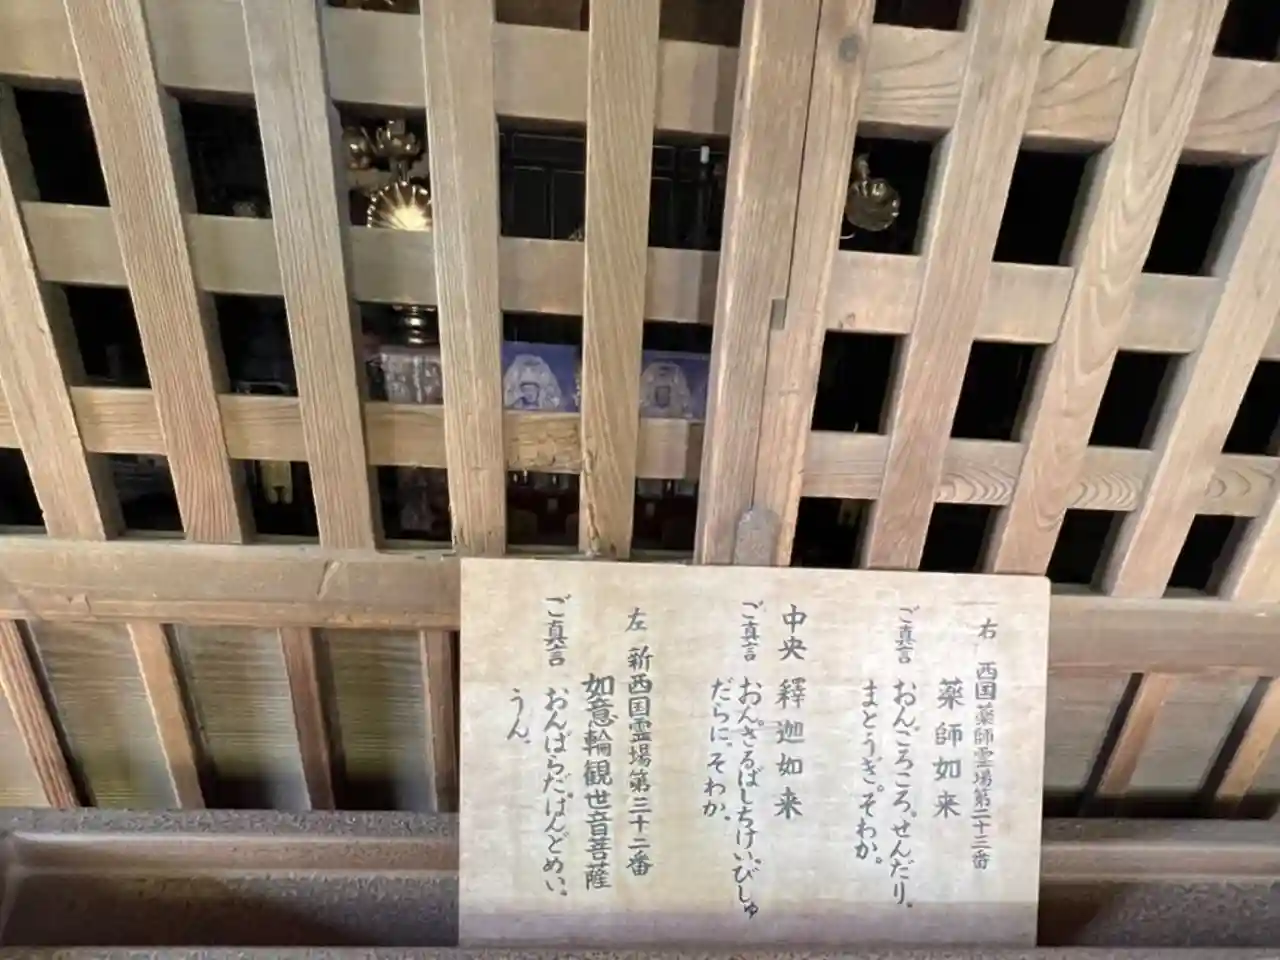 右 西国薬師霊場第二十三番
薬師如来
ご真言 おんころころ。せんだり。
まとうぎ。そわか。
中央 釋迦如来
ご真言 おん。さるばしちけい。びしゅ
だらに。そわか。
左 新西国霊場第三十二番
如意輪観世音菩薩
ご真言 おんばらだ。はんどめい。
うん。